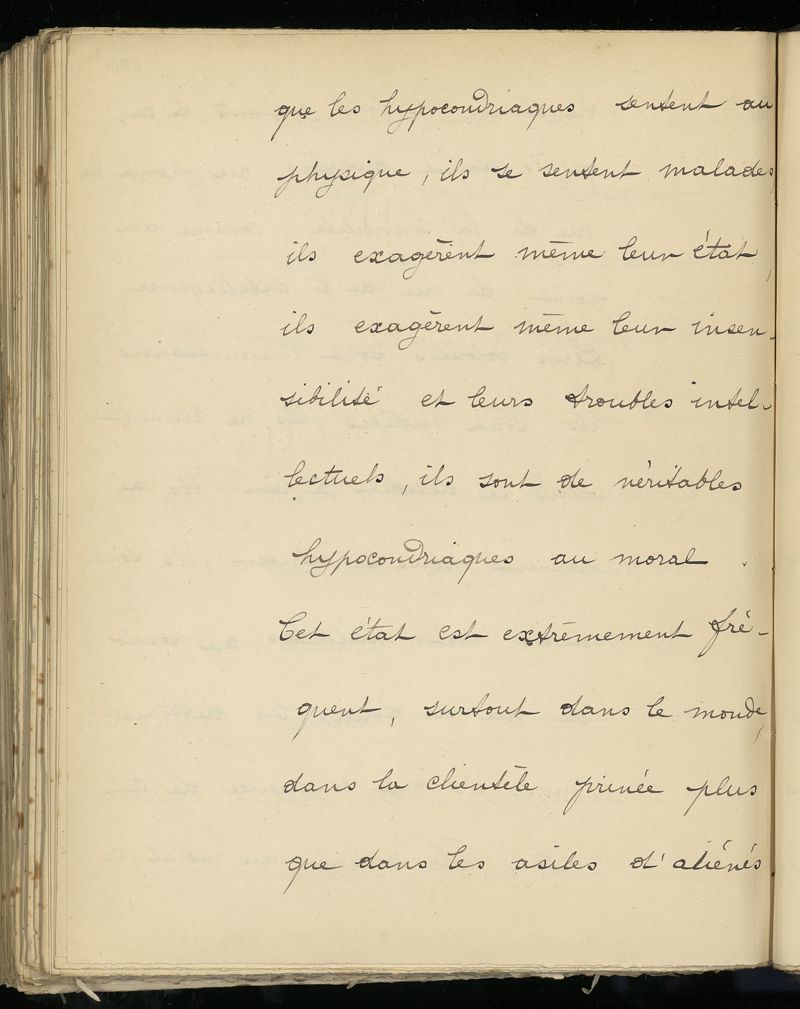 que les hypocondriaques sentent au
physique, ils se sentent malades
ils exagèrent même leur état,
ils exagèrent même leur insen-
sibilité et leurs troubles intel-
lectuels, ils sont de véritables
hypocondriaques au moral.
Cet état est extrêmement fré-
quent, surtout dans le monde,
dans la clientèle privée plus
que dans les asiles d'aliénés